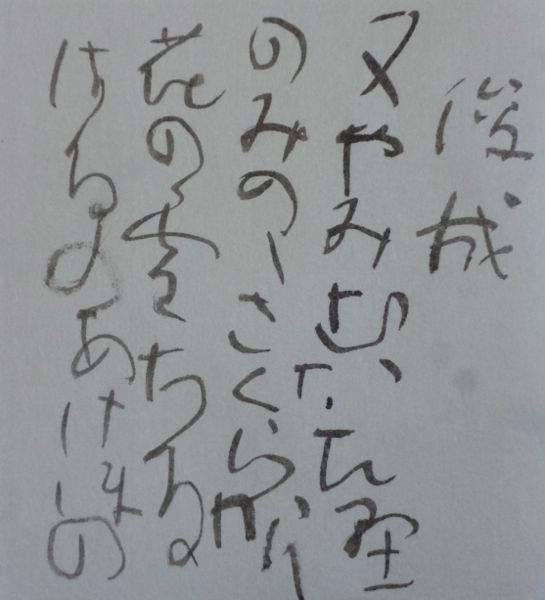 俊成
又やみむかた野
のみのゝさくらがり
花の雪ちる
はるのあけぼの